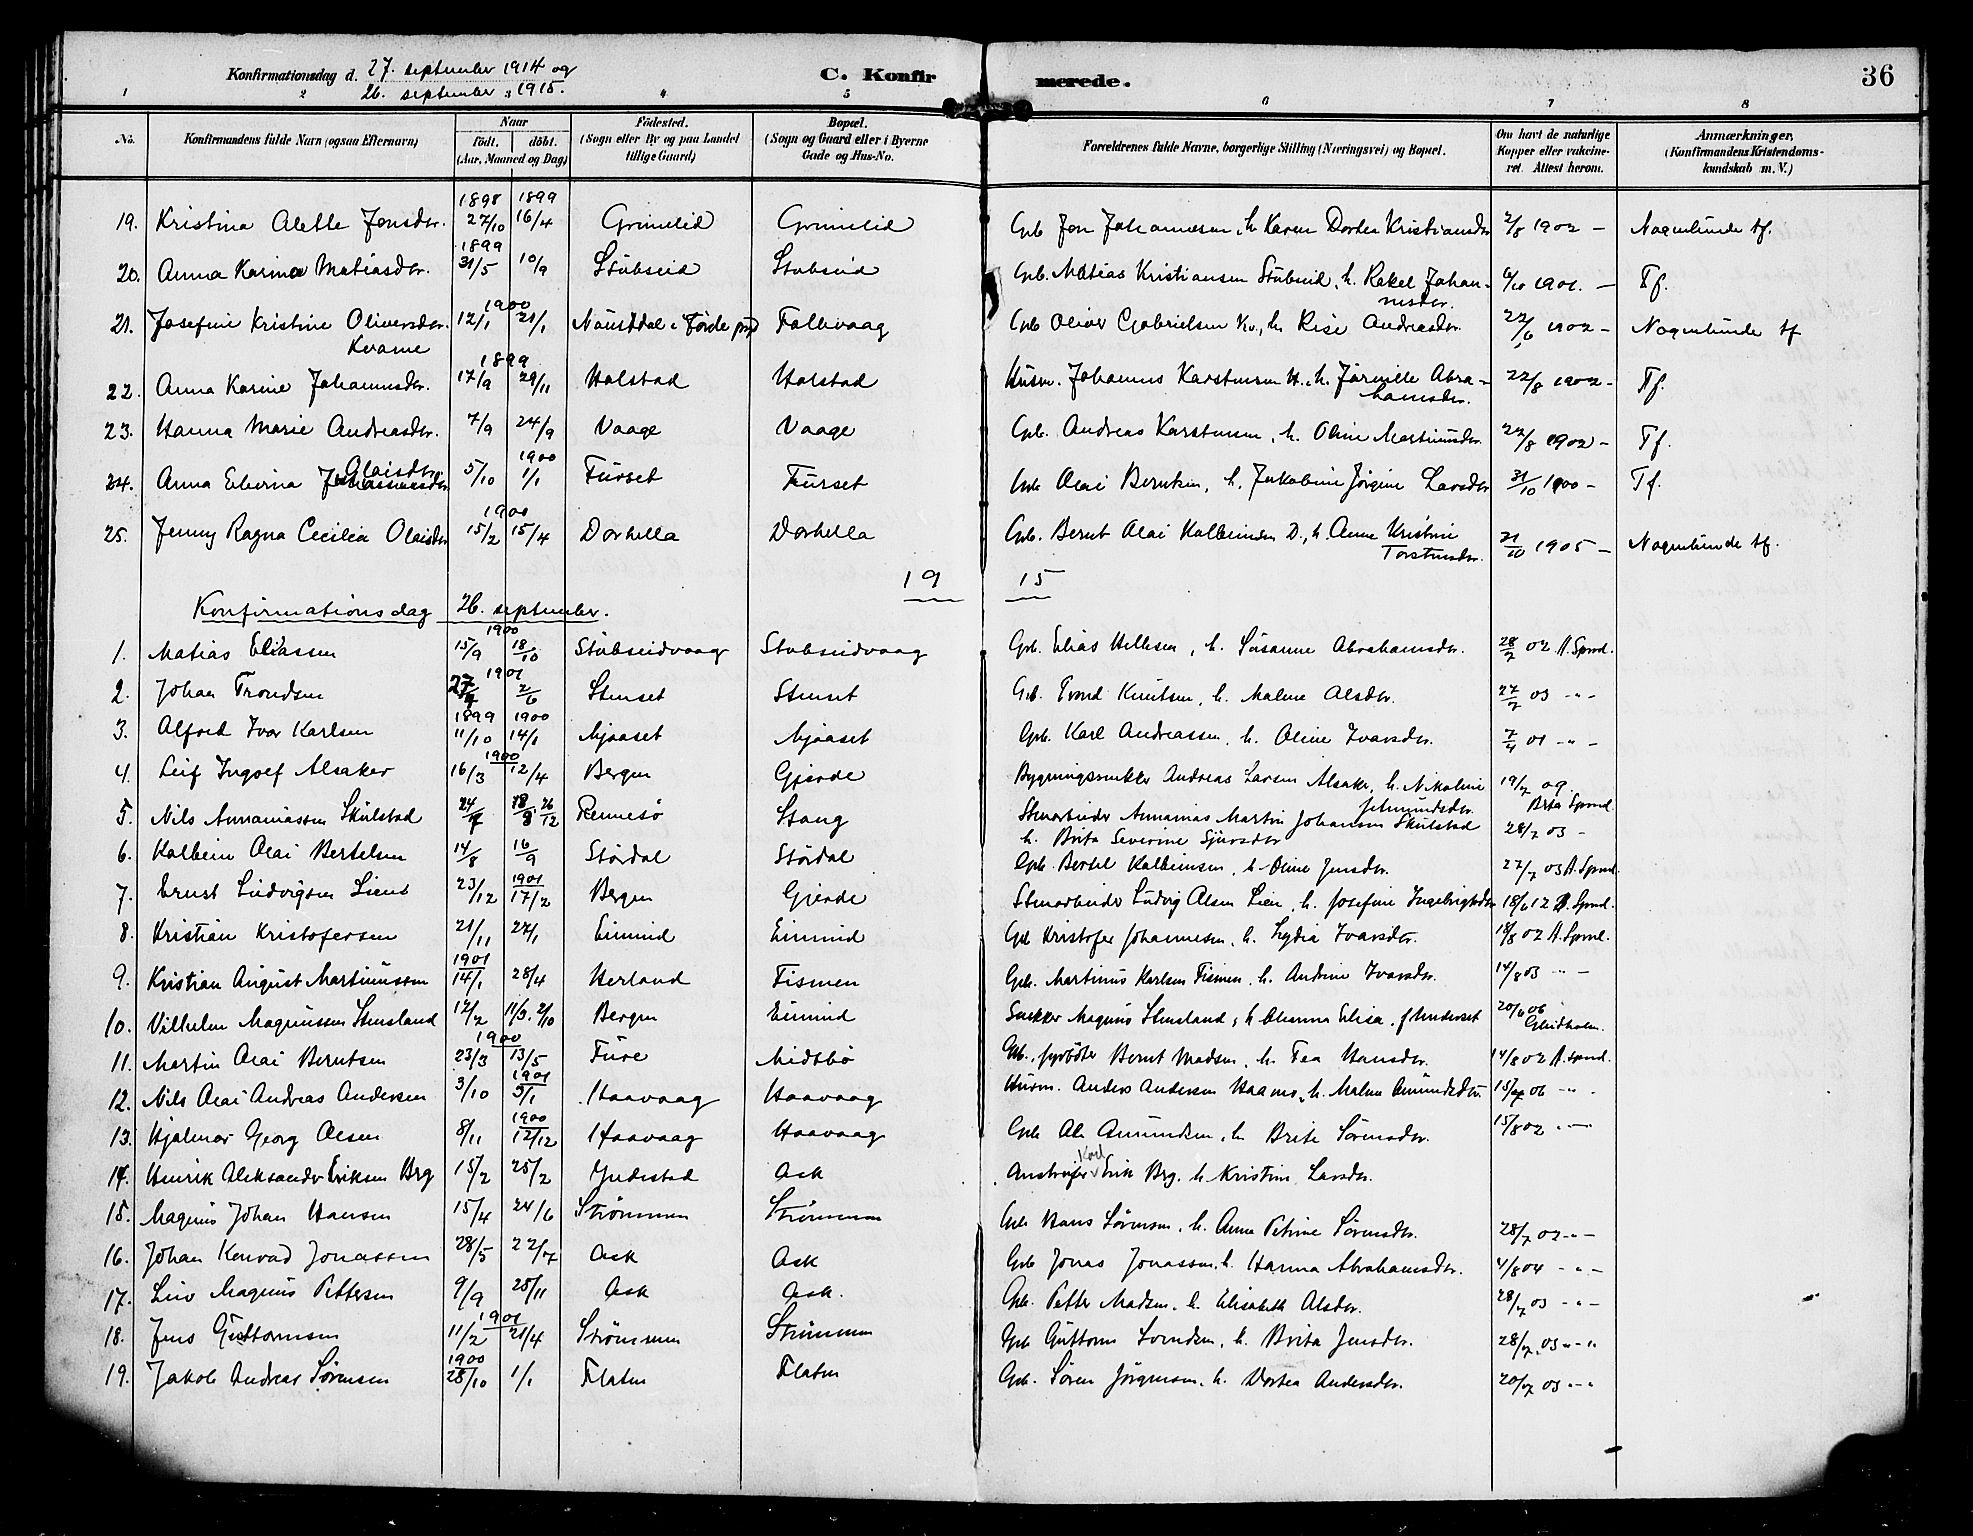 Konfirmationsdag d. 27. september 1914 og
26. september 1915.
C. Konfirmerede.
36
1 2 3 4 5 6 7 8
No. Konfirmandens fulde Navn (ogsaa Efternavn) Naar født. døbt. (Aar, Maaned og Dag) Fødested. (Sogn eller By og paa Landet tillige Gaard) Bopæl. (Sogn og Gaard eller i Byerne Gade og Hus-No. Forældrenes fulde Navne, borgerlige Stilling (Næringsvei) og Bopæl. Om havt de naturlige Kopper eller vakcineret. Attest herom. Anmærkninger. (Konfirmandens Kristendomskundskab m. V.)
1898 1899
19. Kristina Alette Jonsdr. 27/10 16/4 Grimelid Grimelid Grb Jon Johannesen, h. Karen Dortea Kristiansdr 2/8 1902 — Nogenlunde tf.
1899
20. Anna Karina Matiasdr. 31/5 10/9 Stubseid Stubseid Grb. Matias Kristiansen Stubseid, h. Rakel Johannesdr. 6/10 1901. — Tf.
1900
21. Josefine Kristine Oliversdr. Kvame 12/1 21/1 Naustdal i Førde prgd Falkevaag Grb Oliver Gabrielsen Kv., h. Rise Andreasdr. 22/6 1902 – Nogenlunde tf
1899
22. Anna Karine Johannesdr. 17/9 29/11 Halstad Halstad Husm. Johannes Karstensen H., h. Järnille Abrahamsdr. 22/8 1902 – Tf.
23. Hanna Marie Andreasdr. 7/9 24/9 Vaage Vaage Grb. Andreas Karstensen, h. Oline Martinusdr. 22/8 1902 – Tf.
1900
24. Anna Elverina Olaisdr. 5/10 1/1 Furset Furset Grb Olai Berntsen, h. Jakobine Jørgine Larsdr 31/10 1900 – Tf.
1900
25. Jenny Ragna Cecilia Olaisdr 15/2 15/4 Dorhella Dorhella Grb. Bernt Olai Kolbeinsen D., h. Anne Kristine Torstensdr. 21/10 1905 – Nogenlunde tf.
19 15
Konfirmationsdag 26. september.
1900
1. Matias Eliassen 15/9 18/10 Stubseidvaag Stubseidvaag Grb. Elias Hellesen, h. Susanne Abrahamsdr. 28/7 02 A. Sprnd.
1901
2. Johan Trondsen 2/6 Stenset Stenset Grb. Trond Knutsen, h. Malene Olsdr. 27/7 03 -"-
1899 1900
3. Alfred Ivar Karlsen 11/10 14/1 Njaaset Njaaset Grb. Karl Andreassen, h. Oline Ivarsdr. 7/9 01 -"-
1900
4. Leif Ingolf Alsaker 16/3 12/4 Bergen Gjerde Bygningssnekker Andreas Larsen Alsaker, h. Nikoline Jetmundsdr. 19/7 09. Brta Sprnd.
5. Nils Annaniassen Skulstad 26/12 Rennesø Stang Stenarbeider Annanias Martin Johansen Skulstad h. Brita Severine Sjursdr 28/7 03 -
6. Kolbein Olai Bertelsen 14/8 16/9 Stördal Stördal Grb. Bertel Kolbeinsen, h. Oline Jensdr. 27/7 03 A. Sprnd.
7. Ernst Ludvigsen Liene 23/12 1901 17/2 Bergen Gjerde Stenarbeider Ludvig Olsen Lien, h. Josefine Ingebrigtsdr 18/6 12 A. Sprnd.
8. Kristian Kristofersen 21/11 27/1 Eimind Eimind Grb Kristofer Johannesen, h. Lydia Ivarsdr. 18/8 02 A. Sprnd.
1901
9. Kristian August Martinussen 14/1 28/4 Herland Tismen Grb. Martinus Karlsen Tismen, h. Andrine Ivarsdr. 14/8 03 "-
10. Vilhelm Magnussen Stensland 12/2 11/3. 2/10 Bergen Eimind Snekker Magnus Stensland, h. Johanna Elisa, f. Underset 20/6 06
1900
11. Martin Olai Berntsen 23/3 13/5 Fure Midtbö Grb., fyrböter Bernt Madsen, h. Tea Hansdr. 14/8 02 A. Sprnd.
12. Nils Olai Andreas Andersen 3/10 1901 5/1 Haavaag Haavaag Husm. Anders Andersen Haavaag, h. Malene Amundsdr. 15/7 06 -"-
13. Hjalmar Georg Olsen 8/11 1900 12/12 Haavaag Haavaag Grb Ole Amundsen, h. Brite Sørensdr. 15/8 02 -"-
14. Henrik Aleksander Eriksen Brg 15/2 25/2 Yndestad Ask Anstrøifer Karl Erik Brg. h Kristine Larsdr.
15. Magnus Johan Hansen 15/4 24/6 Strømmen Strømmen Grb Hans Sørensen, h. Anne Petrine Sørensdr. 28/7 02 -"-
16. Johan Konrad Jonassen 28/5 22/7 Ask Ask Grb Jonas Jonassen, h. Hanna Abrahamsdr. 4/8 04 -"-
17. Leiv Magnus Pettersen 9/9 25/11 Ask Ask. Grb. Petter Madsen, h. Elisabeth Olsdr. 28/7 03 -"-
1901
18. Jens Guttormsen 11/2 21/4 Strømmen Strømmen Grb Guttorm Svendsen, h. Brita Jensdr. 28/7 03 -"-
1900
19. Jakob Andreas Sørensen 28/10 1/1 Flaten Flaten Grb. Søren Jørgensen, h. Dortea Andersdr. 20/7 03 -"-